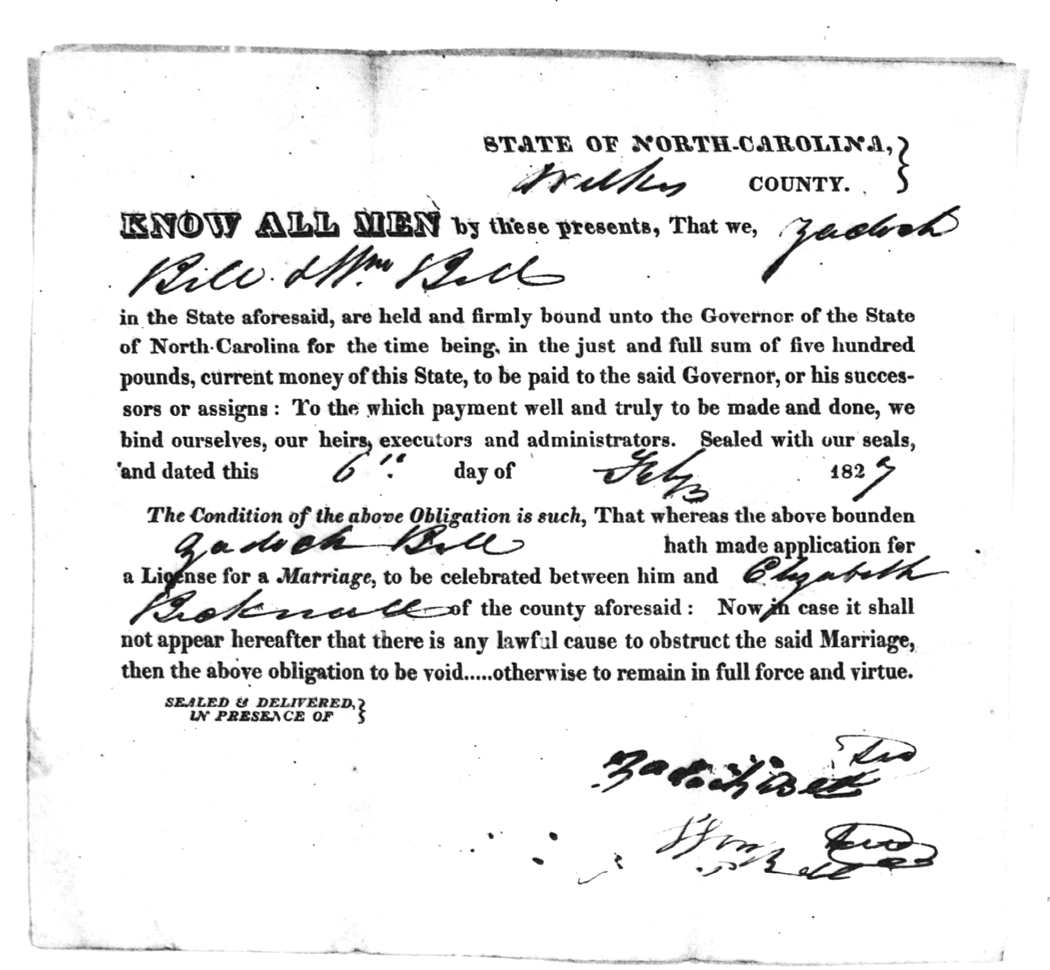 STATE OF NORTH-CAROLINA,
Wilkes COUNTY.
KNOW ALL MEN by these presents, That we, Zadock
Bell & Wm. Bell
in the State aforesaid, are held and firmly bound unto the Governor of the State
of North-Carolina for the time being, in the just and full sum of five hundred
pounds, current money of this State, to be paid to the said Governor, or his succes-
sors or assigns: To the which payment well and truly to be made and done, we
bind ourselves, our heirs, executors and administrators. Sealed with our seals,
and dated this 6th day of Feby 1827
The Condition of the above Obligation is such, That whereas the above bounden
Zadock Bell hath made application for
a License for a Marriage, to be celebrated between him and Elizabeth
Bicknall of the county aforesaid: Now in case it shall
not appear hereafter that there is any lawful cause to obstruct the said Marriage,
then the above obligation to be void.....otherwise to remain in full force and virtue.
SEALED & DELIVERED,
IN PRESENCE OF
Zadock Bell
Wm Bell